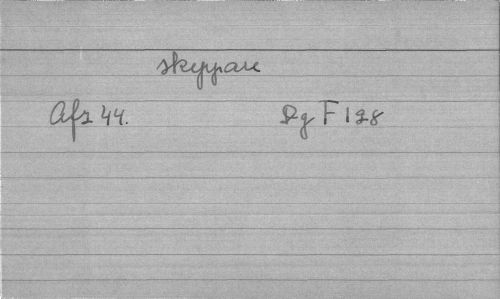 skeppare
Afz 44. Dg F 128